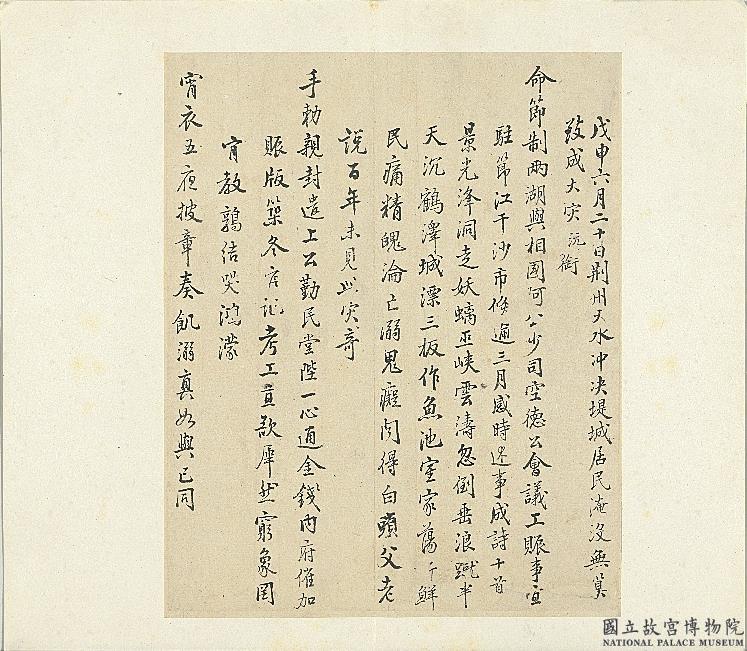 戊申六月二十日荊州大水冲決堤城居民淹沒無算
致成大灾沅銜
命節制兩湖與相國阿公少司空德公會議工賑事宜
駐節江干沙市倏逾三月感時述事成詩十首
景光洚洞走妖螭巫峽雲濤忽倒垂浪蹴半
天沉鶴澤城漂三板作魚池室家蕩鮮
民痛精魄淪亡溺鬼癡得白頭父老
說百年未見此灾奇
手勅親封遣上公勤民堂陛一心通金錢內府催加
賑版築冬官記考工直欲犀然窮象罔
肯教鶉結哭鴻濛
宵衣五夜披章奏飢溺真如與己同
國立故宮博物院
NATIONAL PALACE MUSEUM